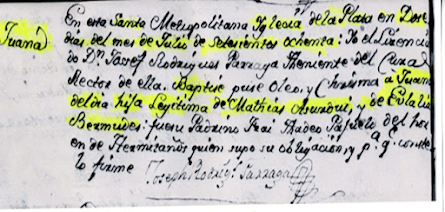 Juana
En esta Santo Metropolitana Iglecia de la Plata en Dose
dias del mes de Julio de setesientos ochenta: Yo el Licencia
do Dn. Josef Rodrigues Parraga Theniente del Cura
Rector de ella. Baptisé puse Oleo, y Chrisma a Juana
del dia hija Legitima de Mathias Asurdui, y de Eulalia
Bermudes: fue su Padrino Frai Tadeo del hor
en de Hermitaños quien supo su obligacion, y pa. q. conste
lo firme
Joseph Rodrigs. Parraga